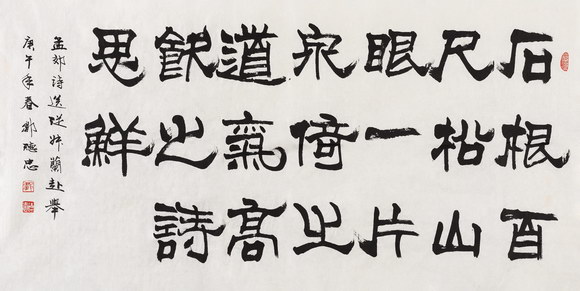 石根百
尺松山
眼一片
泉倚之
道氣高
飲之詩
思鮮
孟郊詩蘭赴舉
庚午年春鄒德忠